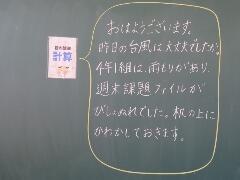 計算
おはようございます。
昨日の台風は大丈夫でしたか。
4年1組は、雨もりがあり、
週末課題ファイルが
びしょぬれでした。机の上に
かわかしておきます。